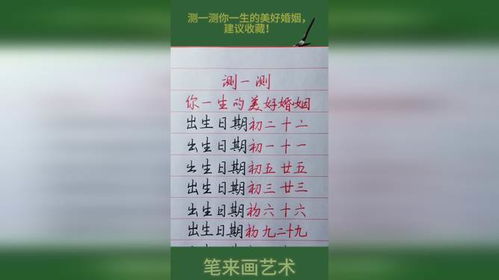 测一测你一生的美好婚姻,
建议收藏!
测一测
你一生的美好婚姻
出生日期初二十二
出生日期初一十一
出生日期初五廿五
出生日期初三廿三
出生日期初六十六
出生日期初九二十九
笔来画艺术